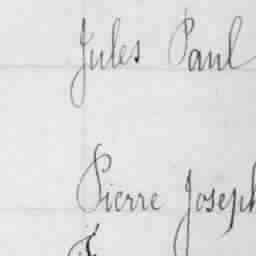 Jules Paul
Pierre Joseph